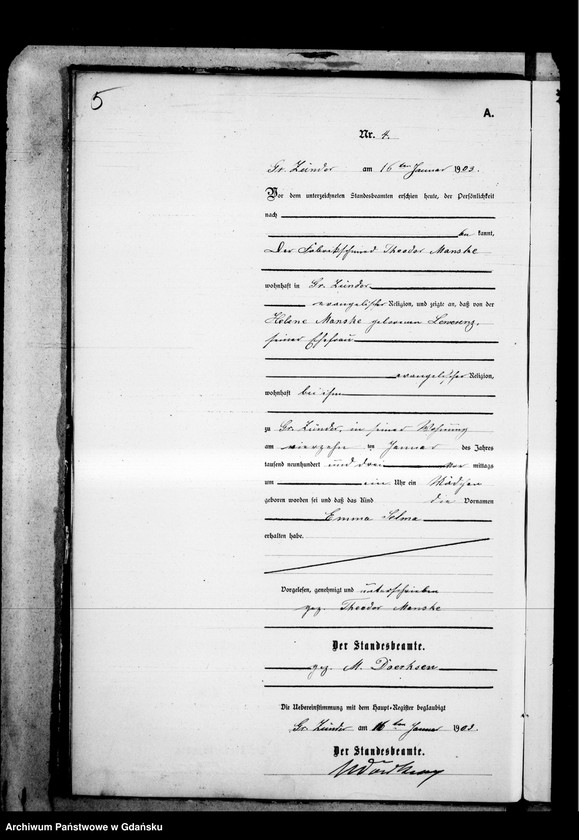 5
A.
Nr. 4.
Gr. Zünder am 16 ten Januar 1903.
Vor dem unterzeichneten Standesbeamten erschien heute, der Persönlichkeit
nach
be kannt,
Der Fabrikschmied Theodor Manske
wohnhaft in Gr. Zünder
evangelischer Religion, und zeigte an, daß von der
Helene Manske geborenen Lewerenz,
seiner Ehefrau
evangelischer Religion,
wohnhaft bei ihm
zu Gr. Zünder, in seiner Wohnung
am vierzehn ten Januar des Jahres
tausend neunhundert und drei vor mittags
um ein Uhr ein Mädchen
geboren worden sei und daß das Kind die Vornamen
Emma Selma
erhalten habe.
Vorgelesen, genehmigt und unterschrieben
gez. Theodor Manske
Der Standesbeamte.
gez. M. Doerksen
Die Uebereinstimmung mit dem Haupt-Register beglaubigt
Gr. Zünder am 16 ten Januar 1903.
Der Standesbeamte.
Archiwum Państwowe w Gdańsku